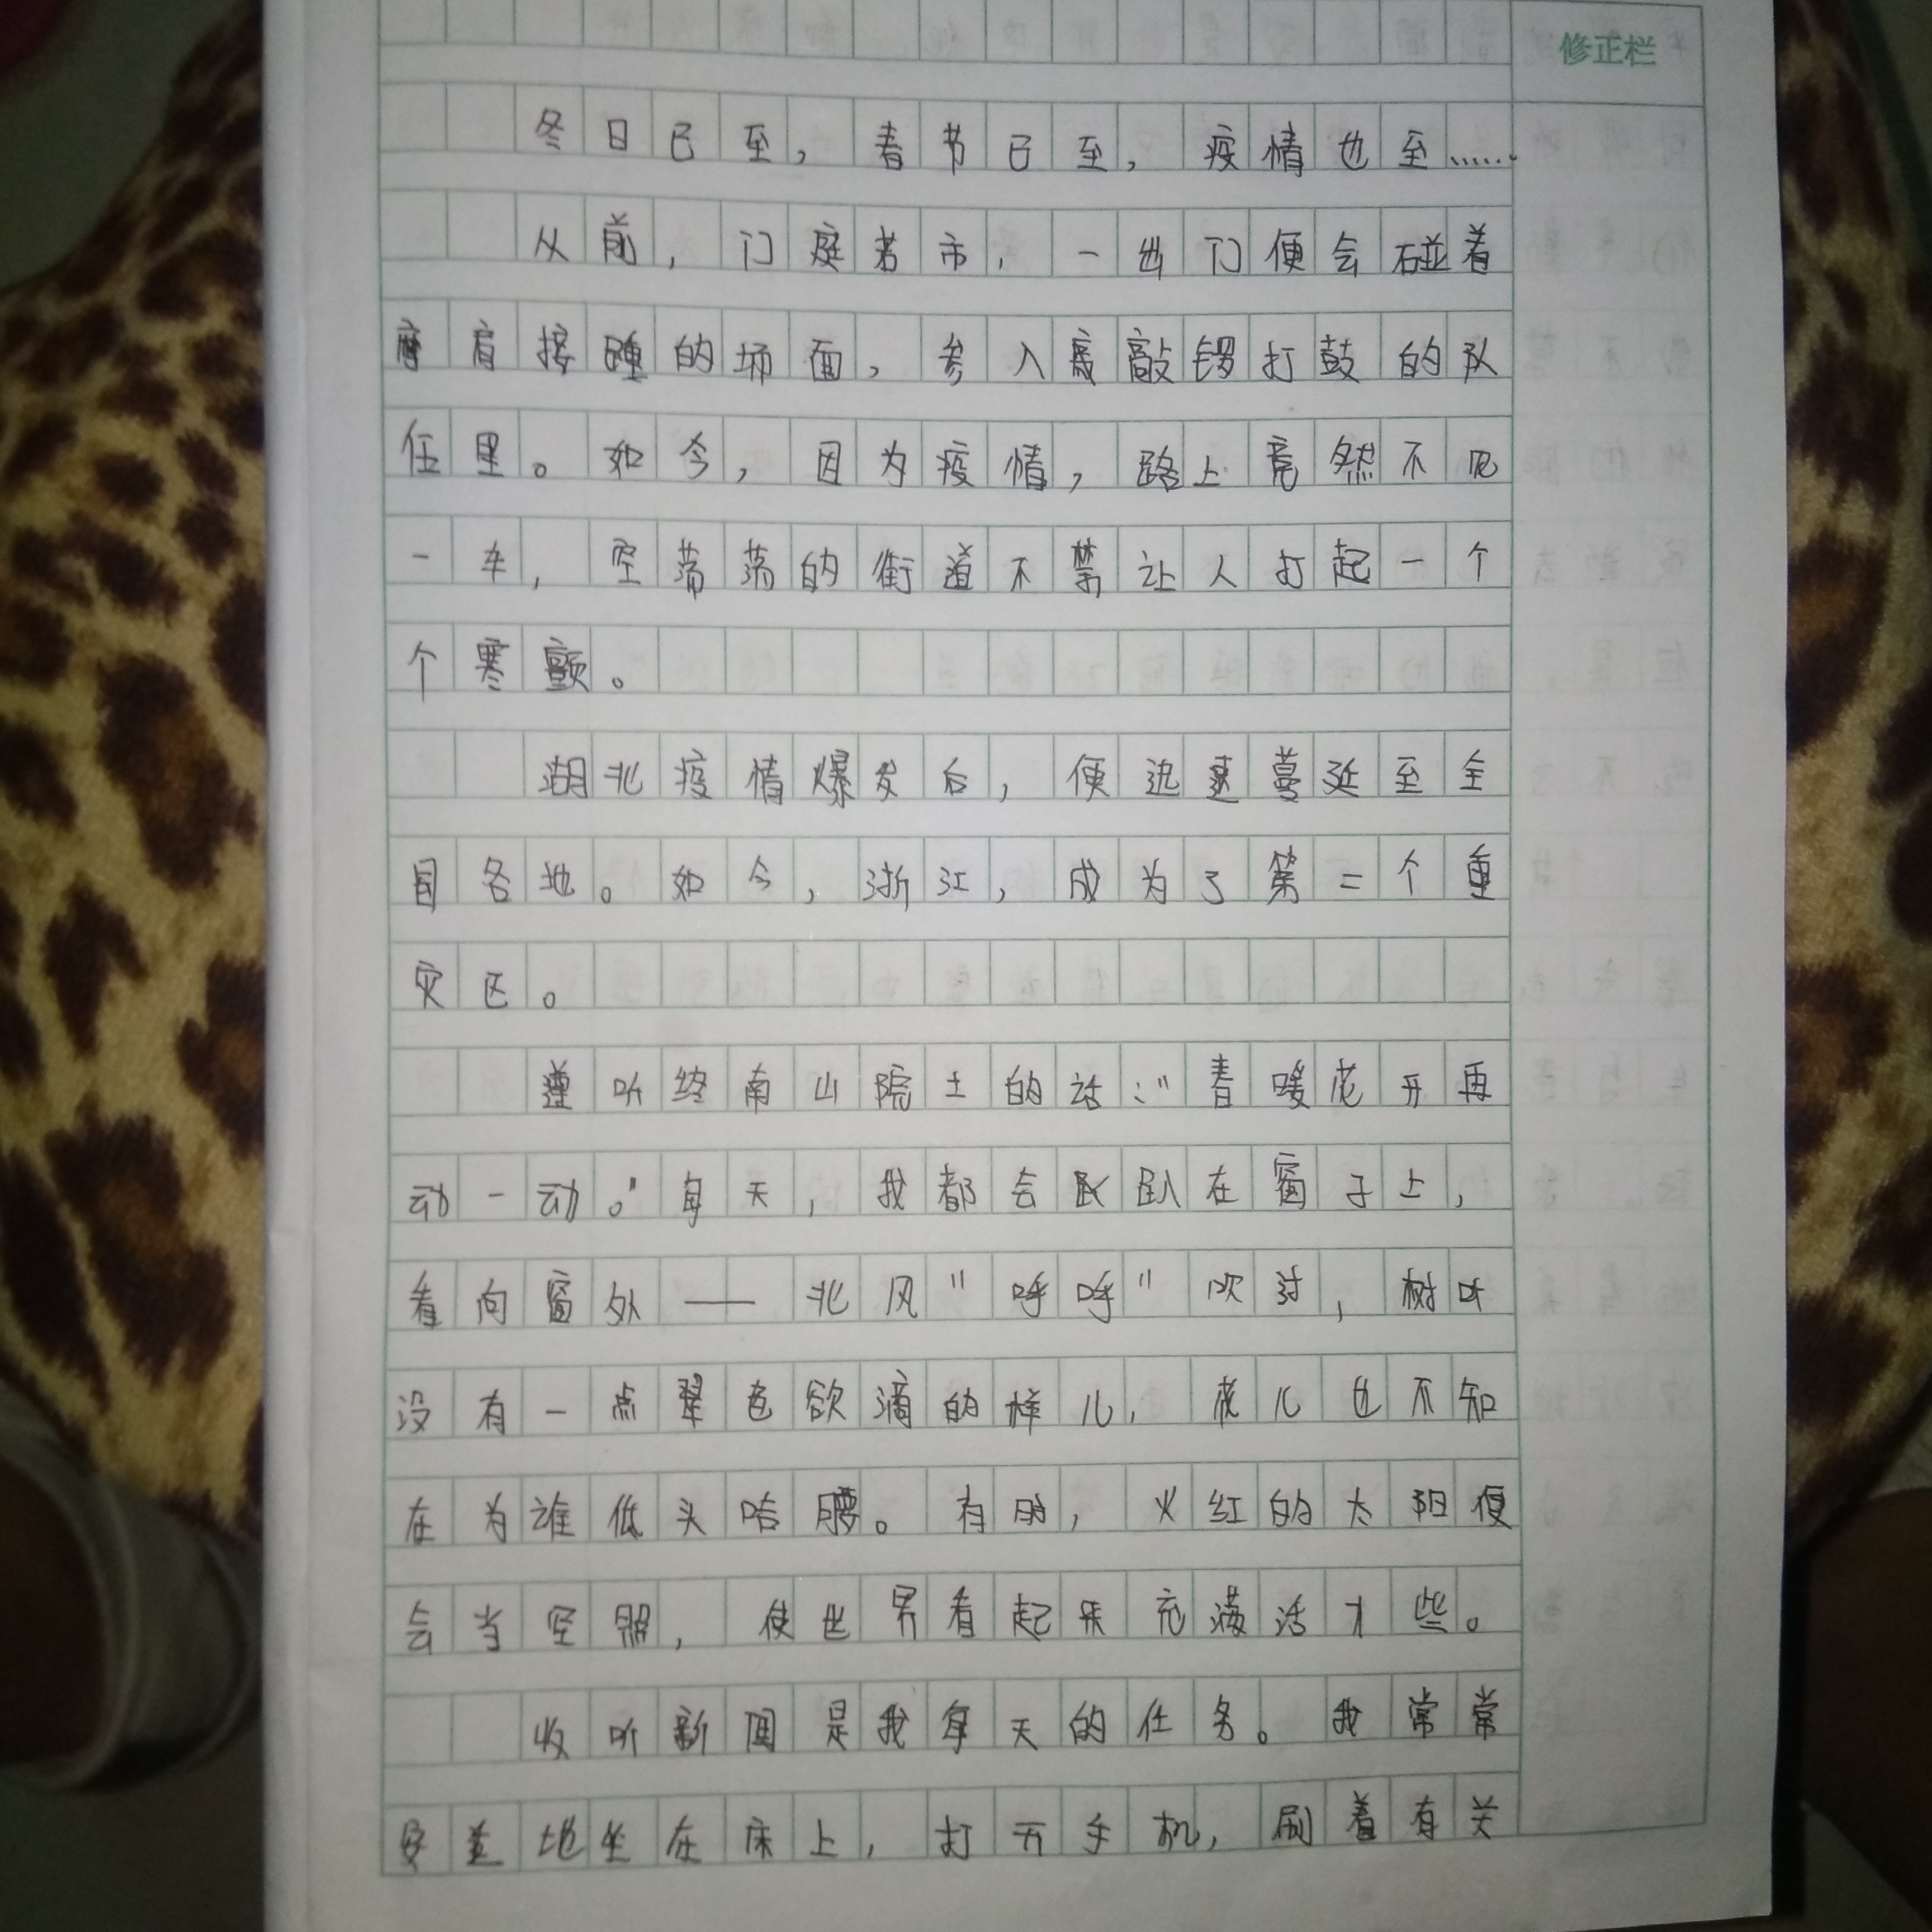 修正栏
冬日已至，春节已至，疫情也至……
从前，门庭若市，一出门便会碰着
摩肩接踵的场面，参入敲锣打鼓的队
伍里。如今，因为疫情，路上竟然不见
一车，空荡荡的街道不禁让人打起一个
个寒颤。
湖北疫情爆发后，便迅速蔓延至全
国各地。如今，浙江，成为了第二个重
灾区。
遵听终南山院士的话："春暖花开再
动一动。"每天，我都会趴在窗子上，
看向窗外——北风"呼呼"吹过，树叶
没有一点翠色欲滴的样儿，花儿也不知
在为谁低头哈腰。有时，火红的太阳便
会当空照，使世界看起来充满活力些。
收听新闻是我每天的任务。我常常
安并地坐在床上，打开手机，刷着有关